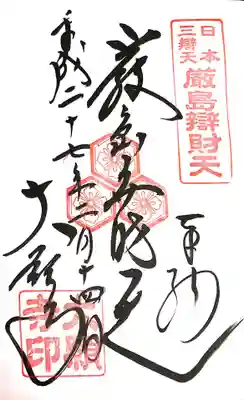 奉拝
日本
三辯天
厳島辯財天
厳島弁財天
平成二十七年二月十四日
大願寺
大願
寺印